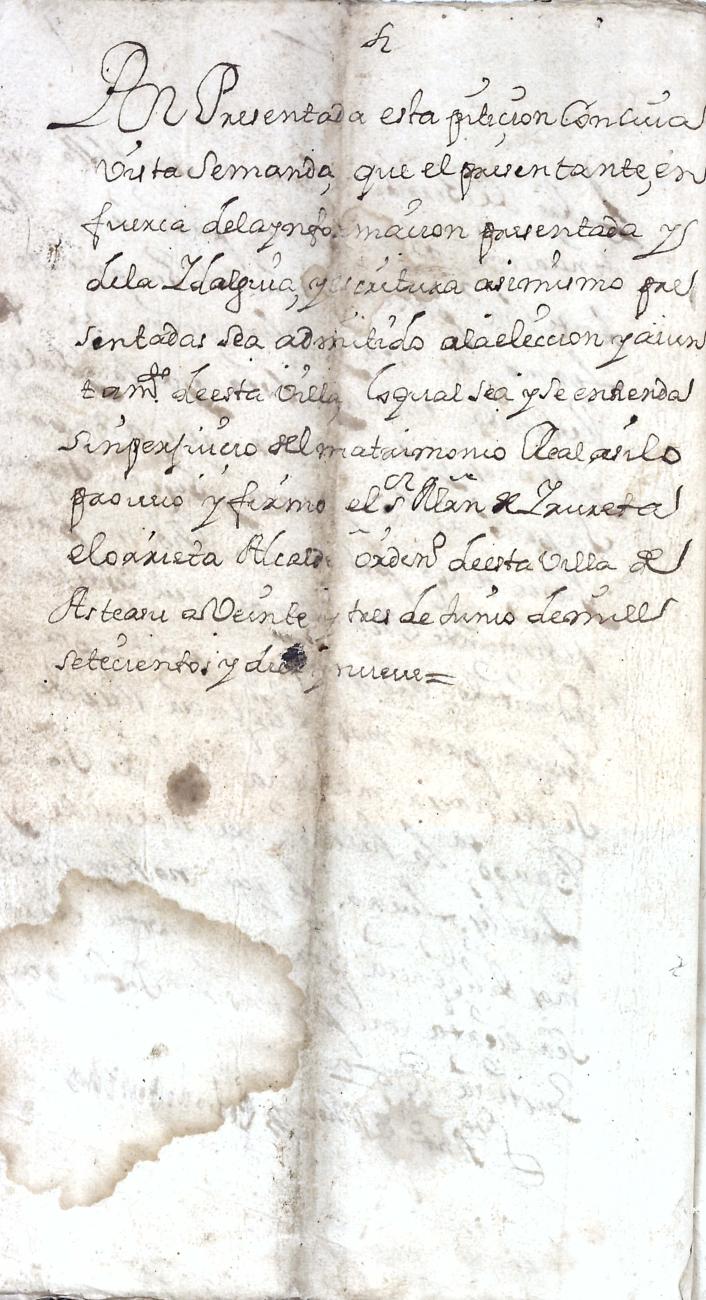 Presentada esta petiçion Con cuia
Vista Semanda, que el presentante, en
fuerca delaynformacion presentada y
dela Idalguia, y escritura asimismo pre
sentadas sea admitido alaeleccion y aiun
tamto deesta Villa loqual sea y se entienda
Sin perjuicio del matrimonio Real asilo
proueio y firmo el Sr Mrn de Irureta
elorrieta Alcalde ordino deesta Villa de
Asteasu a Veinte y tres de Junio de mill
setecientos y diez y nueue=